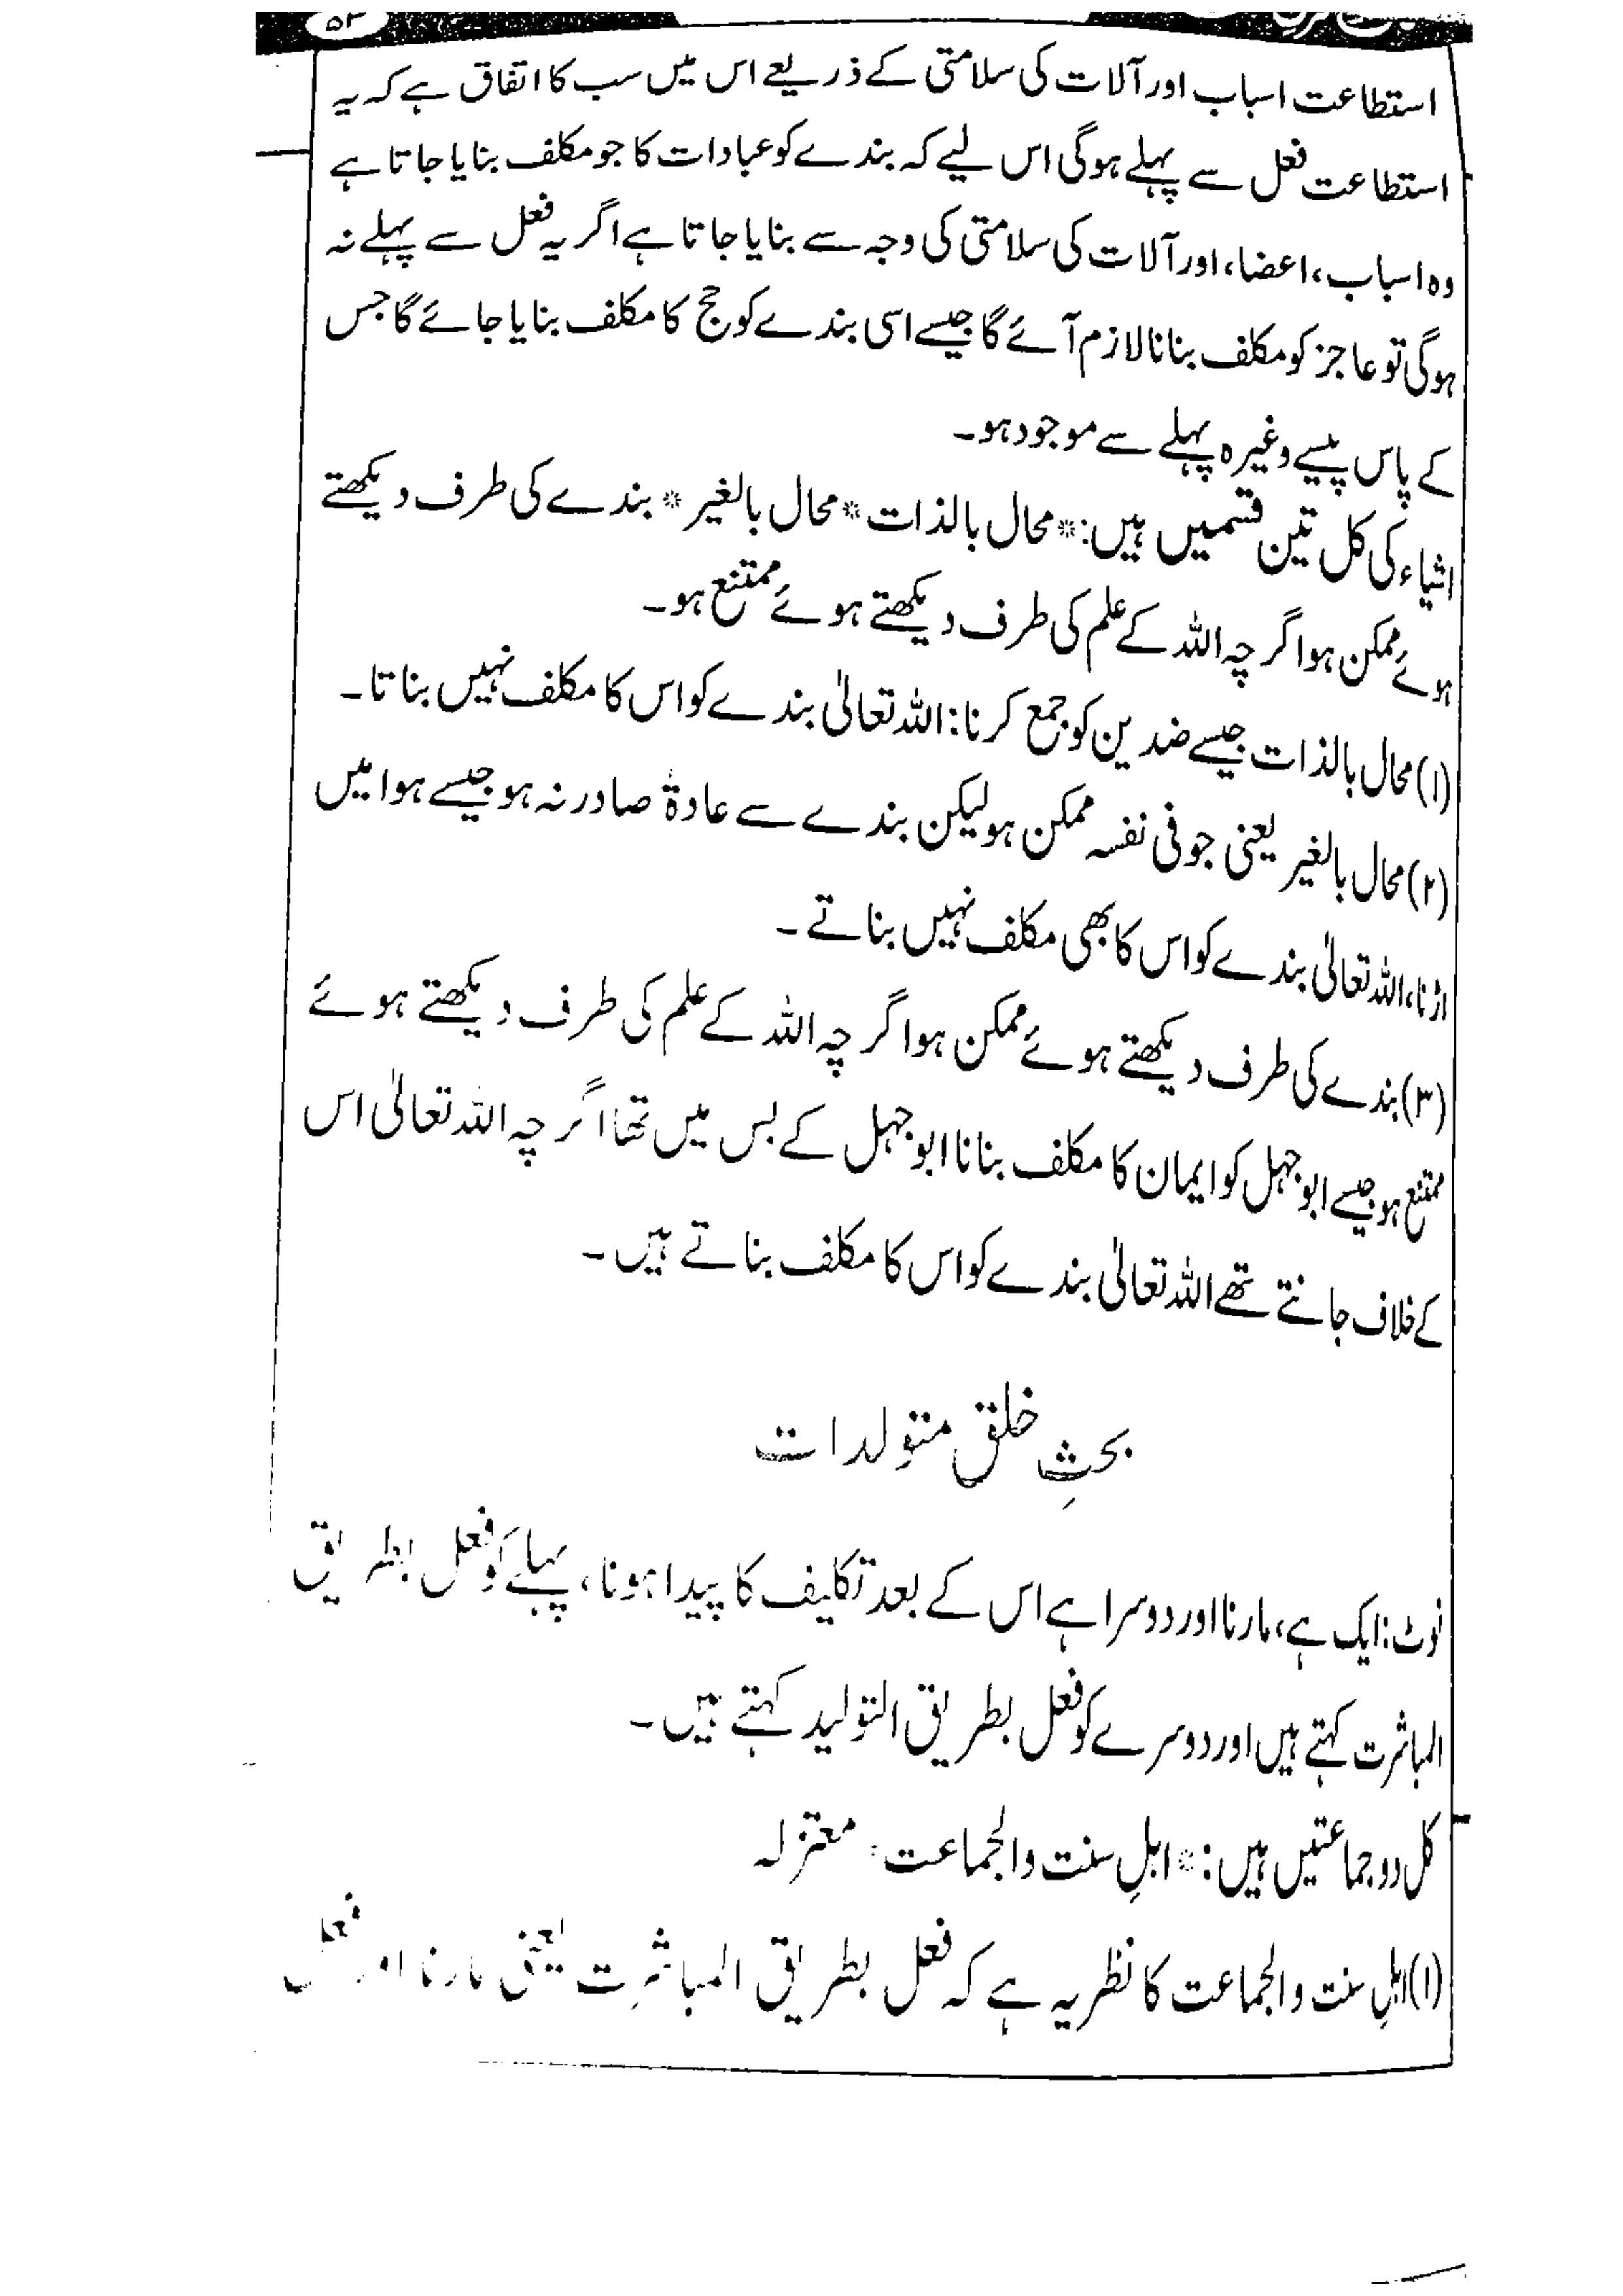 ۵۳
استطاعت اسباب اور آلات کی سلامتی کے ذریعے اس میں سب کا اتفاق ہے کہ یہ
استطاعت فعل سے پہلے ہوگی اس لیے کہ بندے کو عبادات کا جو مکلف بنایا جاتا ہے
وہ اسباب، اعضا، اور آلات کی سلامتی کی وجہ سے بنایا جاتا ہے اگر یہ فعل سے پہلے نہ
ہوگی تو عاجز کو مکلف بنانا لازم آئے گا جیسے اسی بندے کو حج کا مکلف بنایا جائے گا جس
کے پاس پیسے وغیرہ پہلے سے موجود ہو۔
اشیاء کی کل تین قسمیں ہیں: * محال بالذات * محال بالغیر * بندے کی طرف دیکھتے
ہوئے ممکن ہو اگر چہ اللہ کے علم کی طرف دیکھتے ہوئے ممتنع ہو۔
(۱) محال بالذات جیسے ضدین کو جمع کرنا: اللہ تعالیٰ بندے کو اس کا مکلف نہیں بناتا۔
(۲) محال بالغیر یعنی جو فی نفسہ ممکن ہو لیکن بندے سے عادۃً صادر نہ ہو جیسے ہوا میں
اڑنا، اللہ تعالیٰ بندے کو اس کا بھی مکلف نہیں بناتے۔
(۳) بندے کی طرف دیکھتے ہوئے ممکن ہو اگر چہ اللہ کے علم کی طرف دیکھتے ہوئے
ممتنع ہو جیسے ابو جہل کو ایمان کا مکلف بنانا ابو جہل کے بس میں تھا اگر چہ اللہ تعالیٰ اس
کے خلاف جانتے تھے اللہ تعالیٰ بندے کو اس کا مکلف بناتے ہیں۔
بحثِ خلق متولدات
نوٹ: ایک ہے، مارنا اور دوسرا ہے اس کے بعد تکلیف کا پیدا ہونا، پہلے کو فعل بطریق
المباشرت کہتے ہیں اور دوسرے کو فعل بطریق التولید کہتے ہیں۔
کل دو جماعتیں ہیں: * اہلِ سنت والجماعت * معتزلہ
(۱) اہلِ سنت والجماعت کا نظریہ ہے کہ فعل بطریق المباشرت یعنی مارنا اور فعل